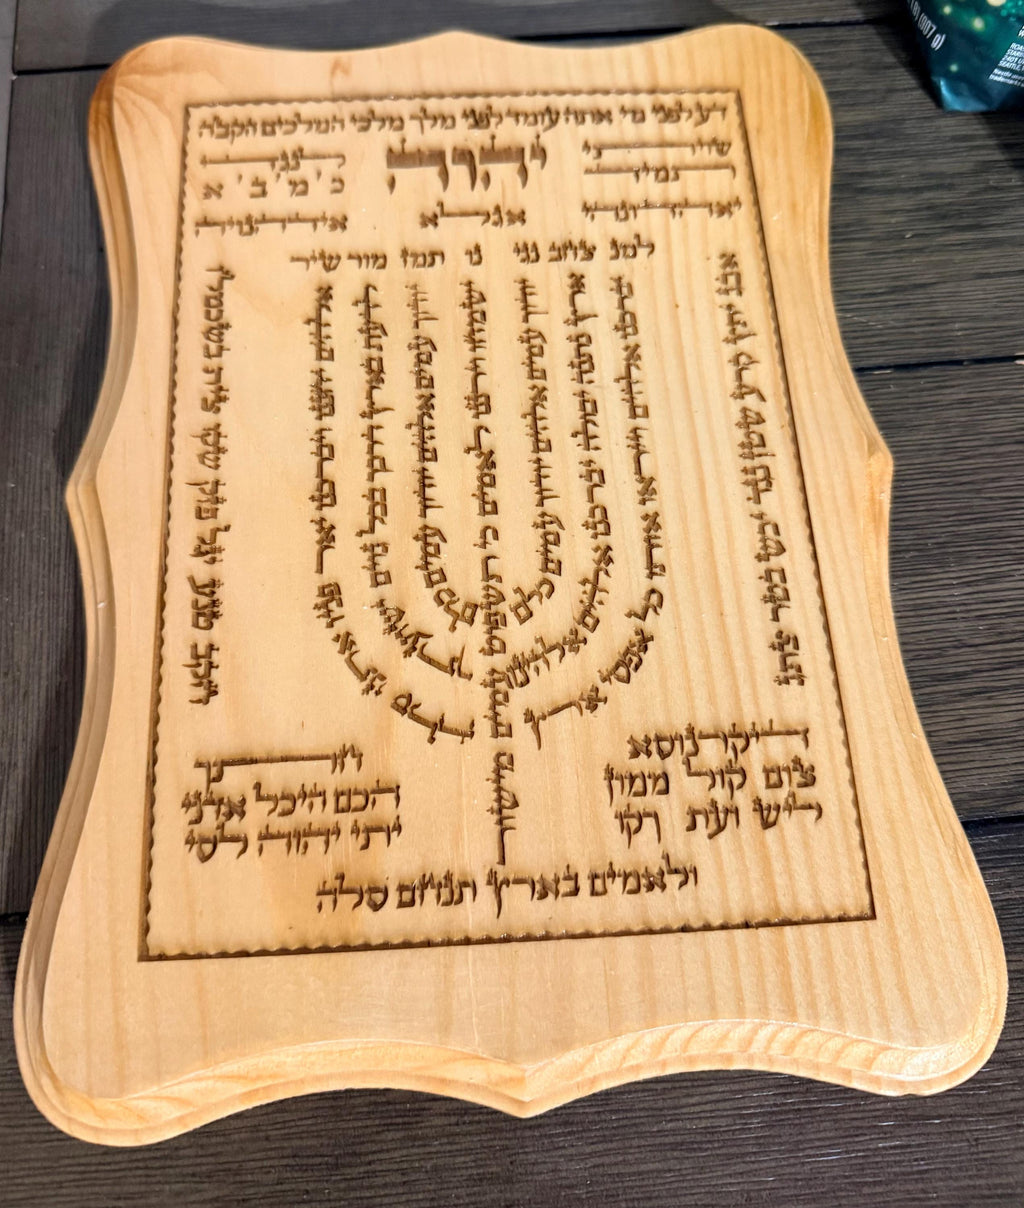 דע לפני מי אתה עומד לפני מלך מלכי המלכים הקב״ה
שויתי יהוה לנגדי
תמיד כ' מ' ב' א
יאהדונהי אגלא אידהנויה
למנ צחב נגי נו תמז מור שיר
אלהים יחננו ויברכנו יאר פניו אתנו סלה
לדעת בארץ דרכך בכל גוים ישועתך
יודוך עמים אלהים יודוך עמים כלם
ישמחו וירננו לאמים כי תשפוט עמים מישור
יודוך עמים אלהים יודוך עמים כלם
ארץ נתנה יבולה יברכנו אלהים אלהינו
יברכנו אלהים וייראו אותו כל אפסי ארץ
אבג יתץ קרע שטן נגד יכש בטר צתג
חקב טנע יגל פזק שקו צית
דיקרנוסא
צום קול ממון
ליש ועת רקו
חכם היכל אדני
יתי יהוה לסי
ולאמים בארץ תנחם סלה
(887 g)